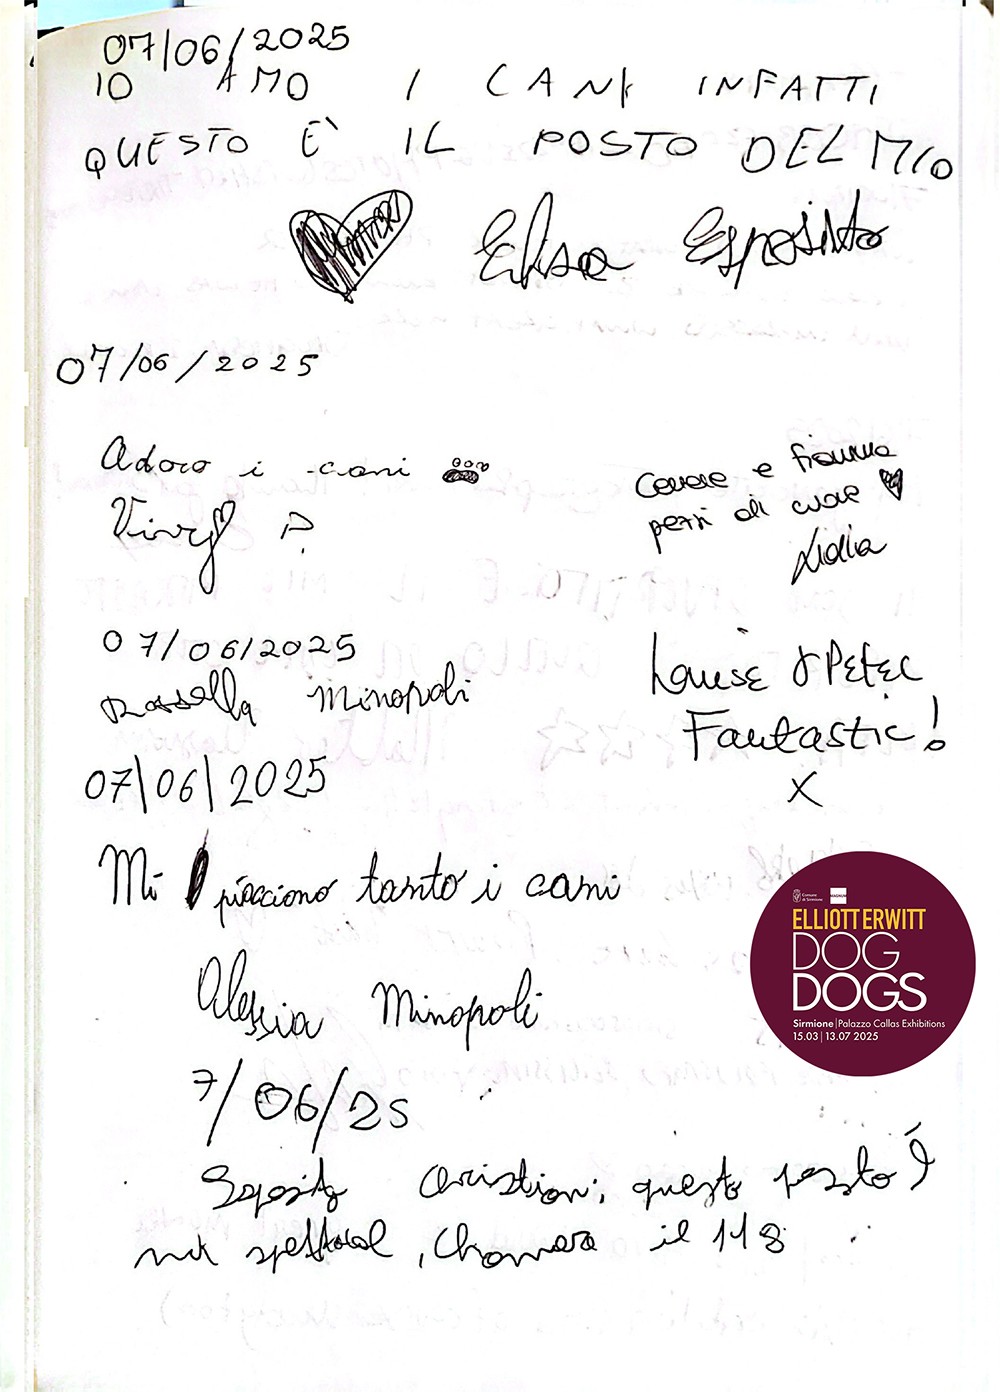 07/06/2025
IO AMO I CANI INFATTI
QUESTO È IL POSTO DEL MIO
Elisa Esposito
07/06/2025
Adoro i cani
Virgy P.
Cenere e fiamma
persi di cuore
Lidia
07/06/2025
Rossella Minopoli
Louise & Peter
Fantastic!
X
07/06/2025
Mi piacciono tanto i cani
Alessia Minopoli
7/06/25
Esposito Cristian, questo posto è
il 118
Comune
di Sirmione
MAGNUM
ELLIOTT ERWITT
DOG
DOGS
Sirmione | Palazzo Callas Exhibitions
15.03 | 13.07 2025